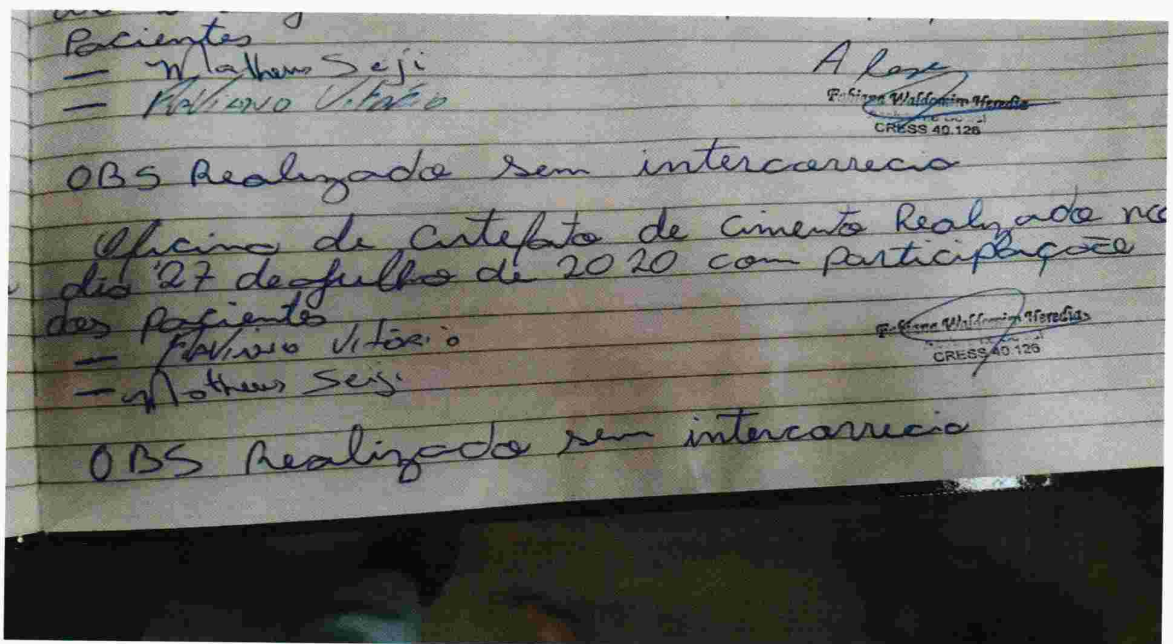 Pacientes
— Matheus Seiji
— Flaviano Vitório
Fabiana Waldomim Heredia
CRESS 40.126
OBS Realizado sem intercorrecia
Oficina de Artefato de Cimento Realizado no
dia 27 de Julho de 2020 com participaçãoe
dos pacientes
— Flaviano Vitório
— Matheus Seiji
Fabiana Waldomim Heredia
CRESS 40.126
OBS Realizado sem intercorrecia